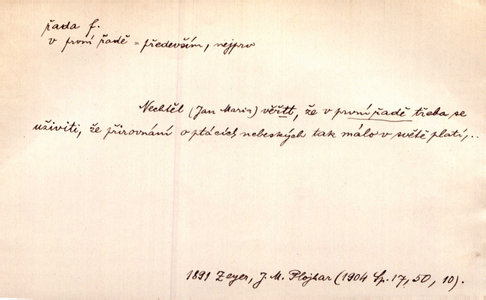 řada f.
v první řadě = především, nejprv
Nechtěl (Jan Maria) věřit, že v první řadě třeba se
uživiti, že přirovnání o ptácích nebeských tak málo v světě platí,..
1891 Zeyer, J. M. Plojhar (1904 Sp. 17, 50, 10).